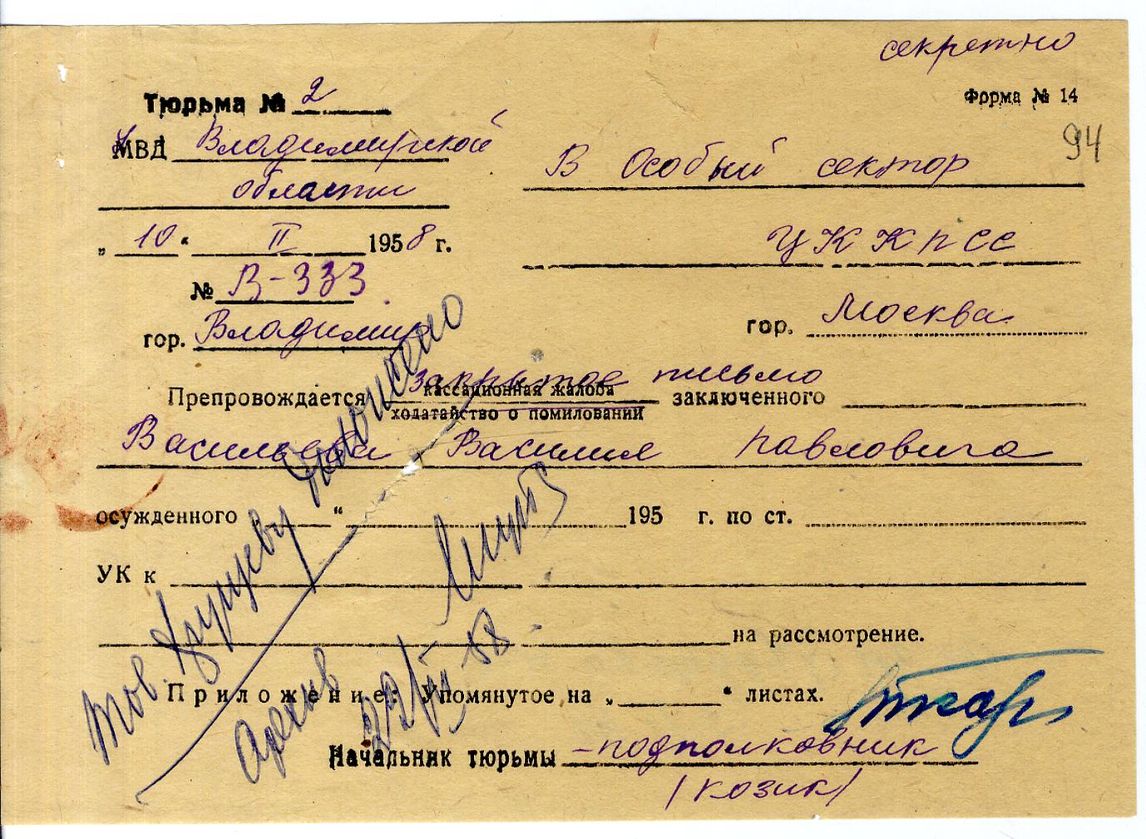 секретно
Тюрьма № 2
Форма № 14
94
МВД Владимирской
области
В Особый сектор
„ 10 “ II 1958 г.
ЦК КПСС
№ В-333
гор. Владимир
гор. Москва
закрытое письмо
Препровождается кассационная жалоба заключенного
ходатайство о помиловании
Васильева Василия Павловича
осужденного „ “ 195 г. по ст.
УК к
на рассмотрение.
Приложение: Упомянутое на „ “ листах.
Начальник тюрьмы – подполковник
(козик)
Тов. Хрущеву доложено
Архив
22/II 58